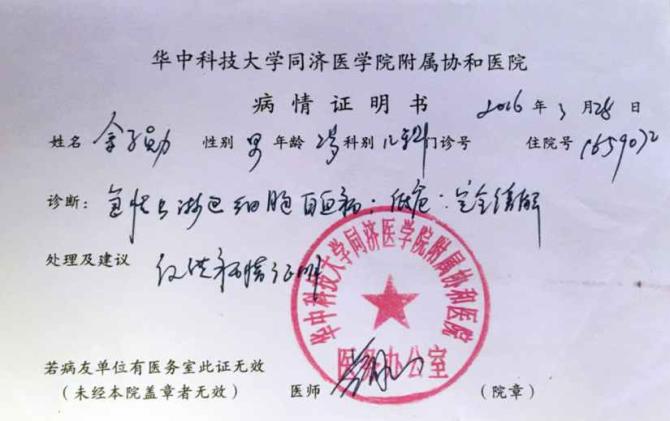 华中科技大学同济医学院附属协和医院
病情证明书 2016年3月28日
姓名 余子勋 性别 男 年龄 2岁 科别 儿科 门诊号 住院号 1659072
诊断：急性B淋巴细胞白血病：低危：完全缓解
处理及建议 仅供病情证明
华中科技大学同济医学院附属协和医院
医务办公室
若病友单位有医务室此证无效
（未经本院盖章者无效） 医师 （院章）